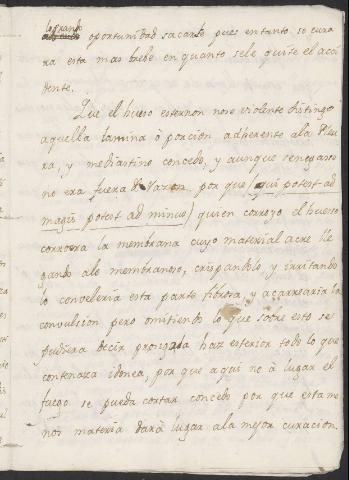 logrando
oportunidad sacarse pues entanto se cura
ra esta mas brebe en quanto sele quite el acci
dente.
Que el hueso esternon no se violente distingo
aquella lamina ò porcion adherente ala Pleu
ra, y mediastino concedo, y aunque senegase
no era fuera de razon, por que (qui potest ad
magis potest ad minus) quien corroyo el hueso
corroera la membrana cuyo material acre lle
gando alo membranoso, crispandolo y irritando
lo conveleria esta parte fibrosa, y acarrearia la
convulsion pero omitiendo lo que sobre esto se
pudiera decir prosigada haz esterior todo lo que
contenaza idonea, por que aqui no à lugar el
fuego se pueda cortar concedo por que esta me
nos materia darà lugar ala mejor curacion.